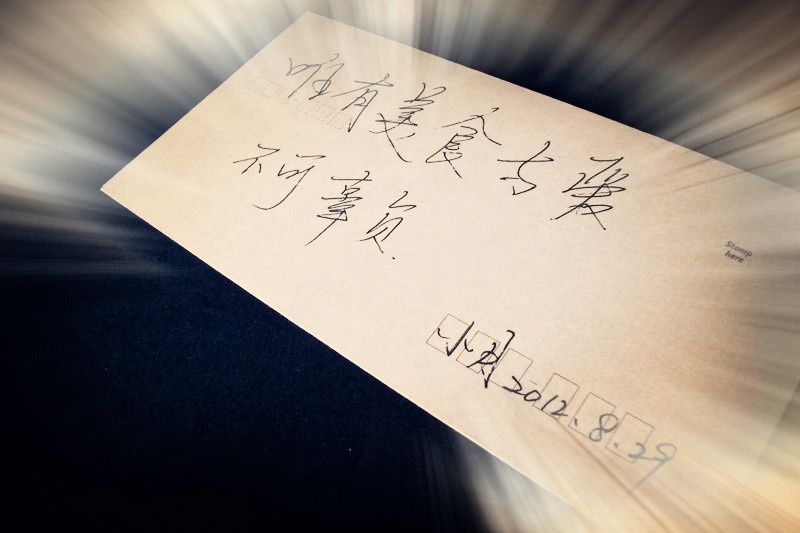 唯有美食与爱
不可辜负
Stamp
here
小月 2012.8.29